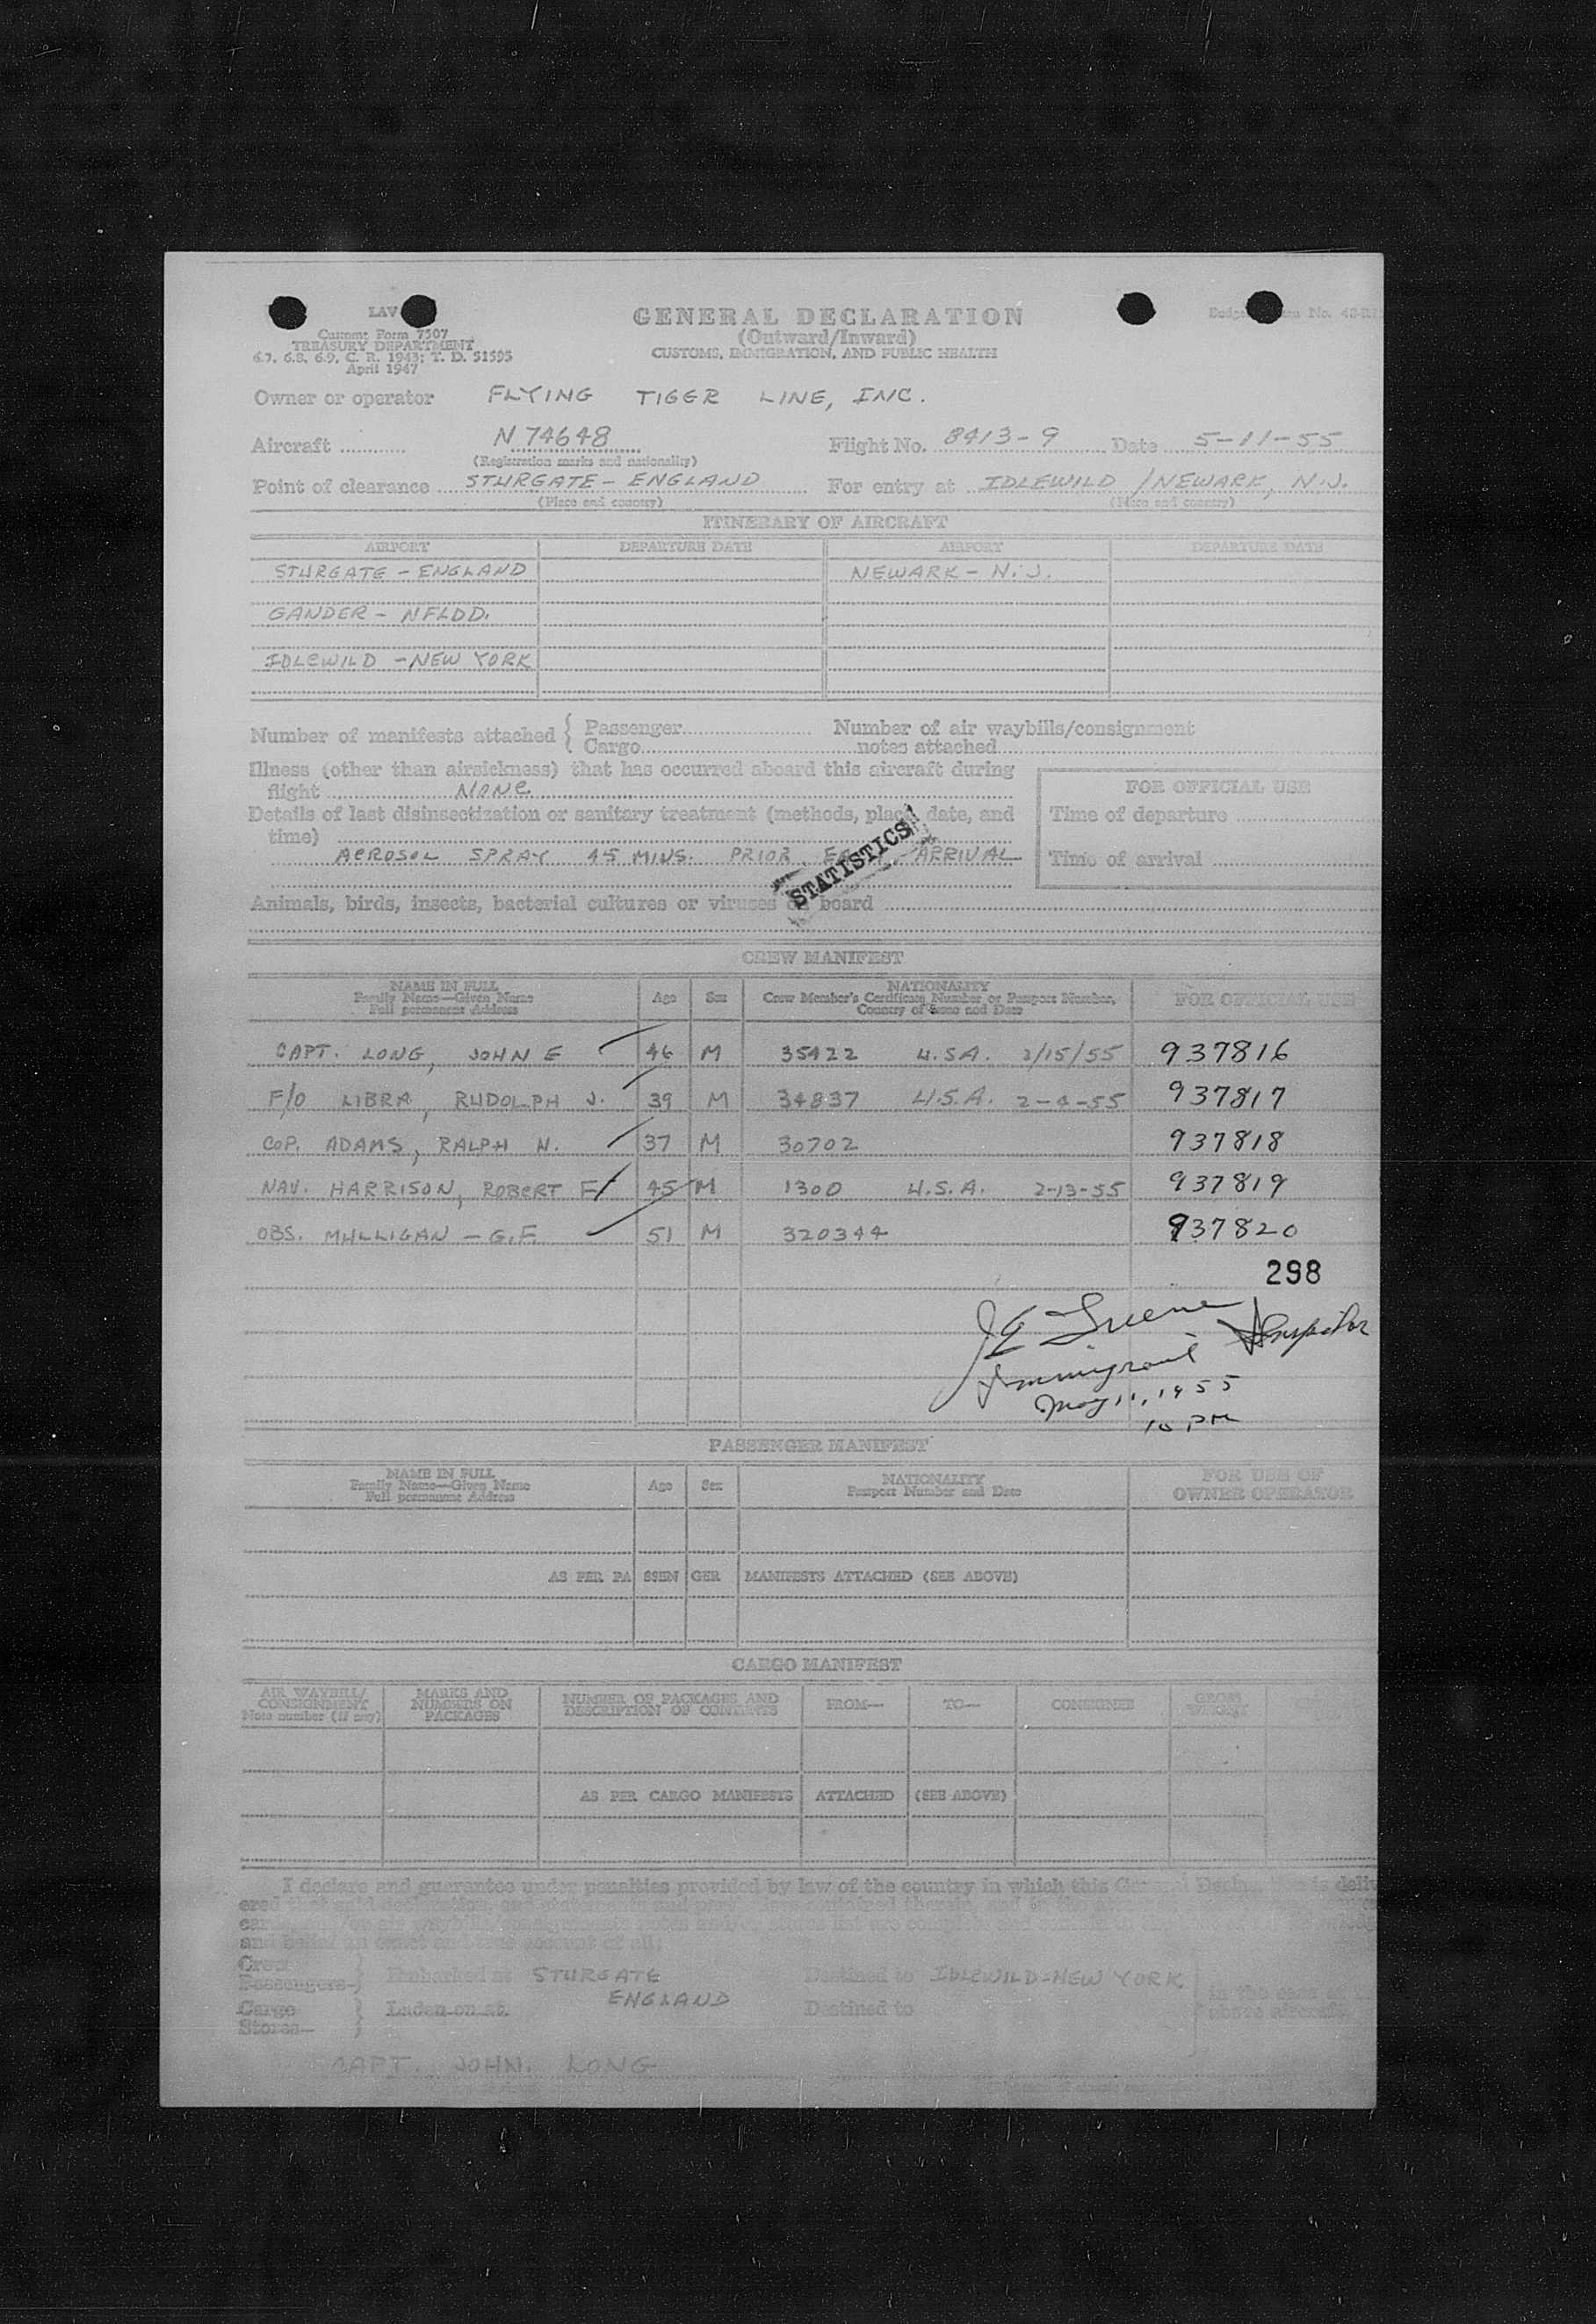 LAV
GENERAL DECLARATION
(Outward/Inward)
CUSTOMS, IMMIGRATION, AND PUBLIC HEALTH
Customs Form 7507
TREASURY DEPARTMENT
6.7, 6.8, 6.9, C. R. 1943; T. D. 51595
April 1947
Owner or operator FLYING TIGER LINE, INC.
Aircraft N 74648 Flight No. 8413-9 Date 5-11-55
(Registration marks and nationality)
Point of clearance STURGATE - ENGLAND For entry at IDLEWILD / NEWARK, N.J.
(Place and country) (Place and country)
ITINERARY OF AIRCRAFT
AIRPORT DEPARTURE DATE AIRPORT DEPARTURE DATE
STURGATE - ENGLAND NEWARK - N.J.
GANDER - NFLDD.
IDLEWILD - NEW YORK
Number of manifests attached { Passenger Number of air waybills/consignment
Cargo notes attached
Illness (other than airsickness) that has occurred aboard this aircraft during
flight NONE. FOR OFFICIAL USE
Details of last disinsectization or sanitary treatment (methods, place, date, and Time of departure
time)
AEROSOL SPRAY 45 MINS. PRIOR ARRIVAL Time of arrival
STATISTICS
Animals, birds, insects, bacterial cultures or viruses on board
CREW MANIFEST
NAME IN FULL
Family Name—Given Name
Full permanent Address
Age Sex
NATIONALITY
Crew Member's Certificate Number or Passport Number,
Country of Issue and Date
FOR OFFICIAL USE
CAPT. LONG, JOHN E 46 M 35422 U.S.A. 2/15/55 937816
F/O LIBRA, RUDOLPH J. 39 M 34837 U.S.A. 2-4-55 937817
COP. ADAMS, RALPH N. 37 M 30702 937818
NAV. HARRISON, ROBERT F 45 M 1300 U.S.A. 2-13-55 937819
OBS. MULLIGAN - G.F. 51 M 320344 937820
298
J E Greene
Immigrant Inspector
May 11, 1955
10 PM
PASSENGER MANIFEST
NAME IN FULL
Family Name—Given Name
Full permanent Address
Age Sex
NATIONALITY
Passport Number and Date
FOR USE OF
OWNER OPERATOR
AS PER PASSENGER MANIFESTS ATTACHED (SEE ABOVE)
CARGO MANIFEST
AIR WAYBILL/
CONSIGNMENT
Note number (if any)
MARKS AND
NUMBERS ON
PACKAGES
NUMBER OF PACKAGES AND
DESCRIPTION OF CONTENTS
FROM— TO— CONSIGNEE GROSS
WEIGHT
AS PER CARGO MANIFESTS ATTACHED (SEE ABOVE)
I declare and guarantee under penalties provided by law of the country in which this General is deliv
and belief an exact and true account of all:
Crew
Passengers } Embarked at STURGATE Destined to IDLEWILD-NEW YORK
ENGLAND
Cargo
Stores } Laden on at Destined to
in the case
above aircraft.
CAPT. JOHN. LONG